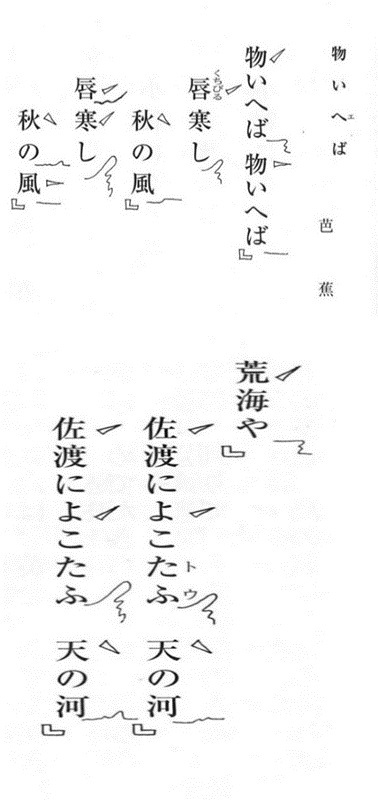 物いへば
芭蕉
物いへば 物いへば
唇寒し
秋の風
唇寒し
秋の風
荒海や
佐渡によこたふ 天の河
佐渡によこたふ 天の河